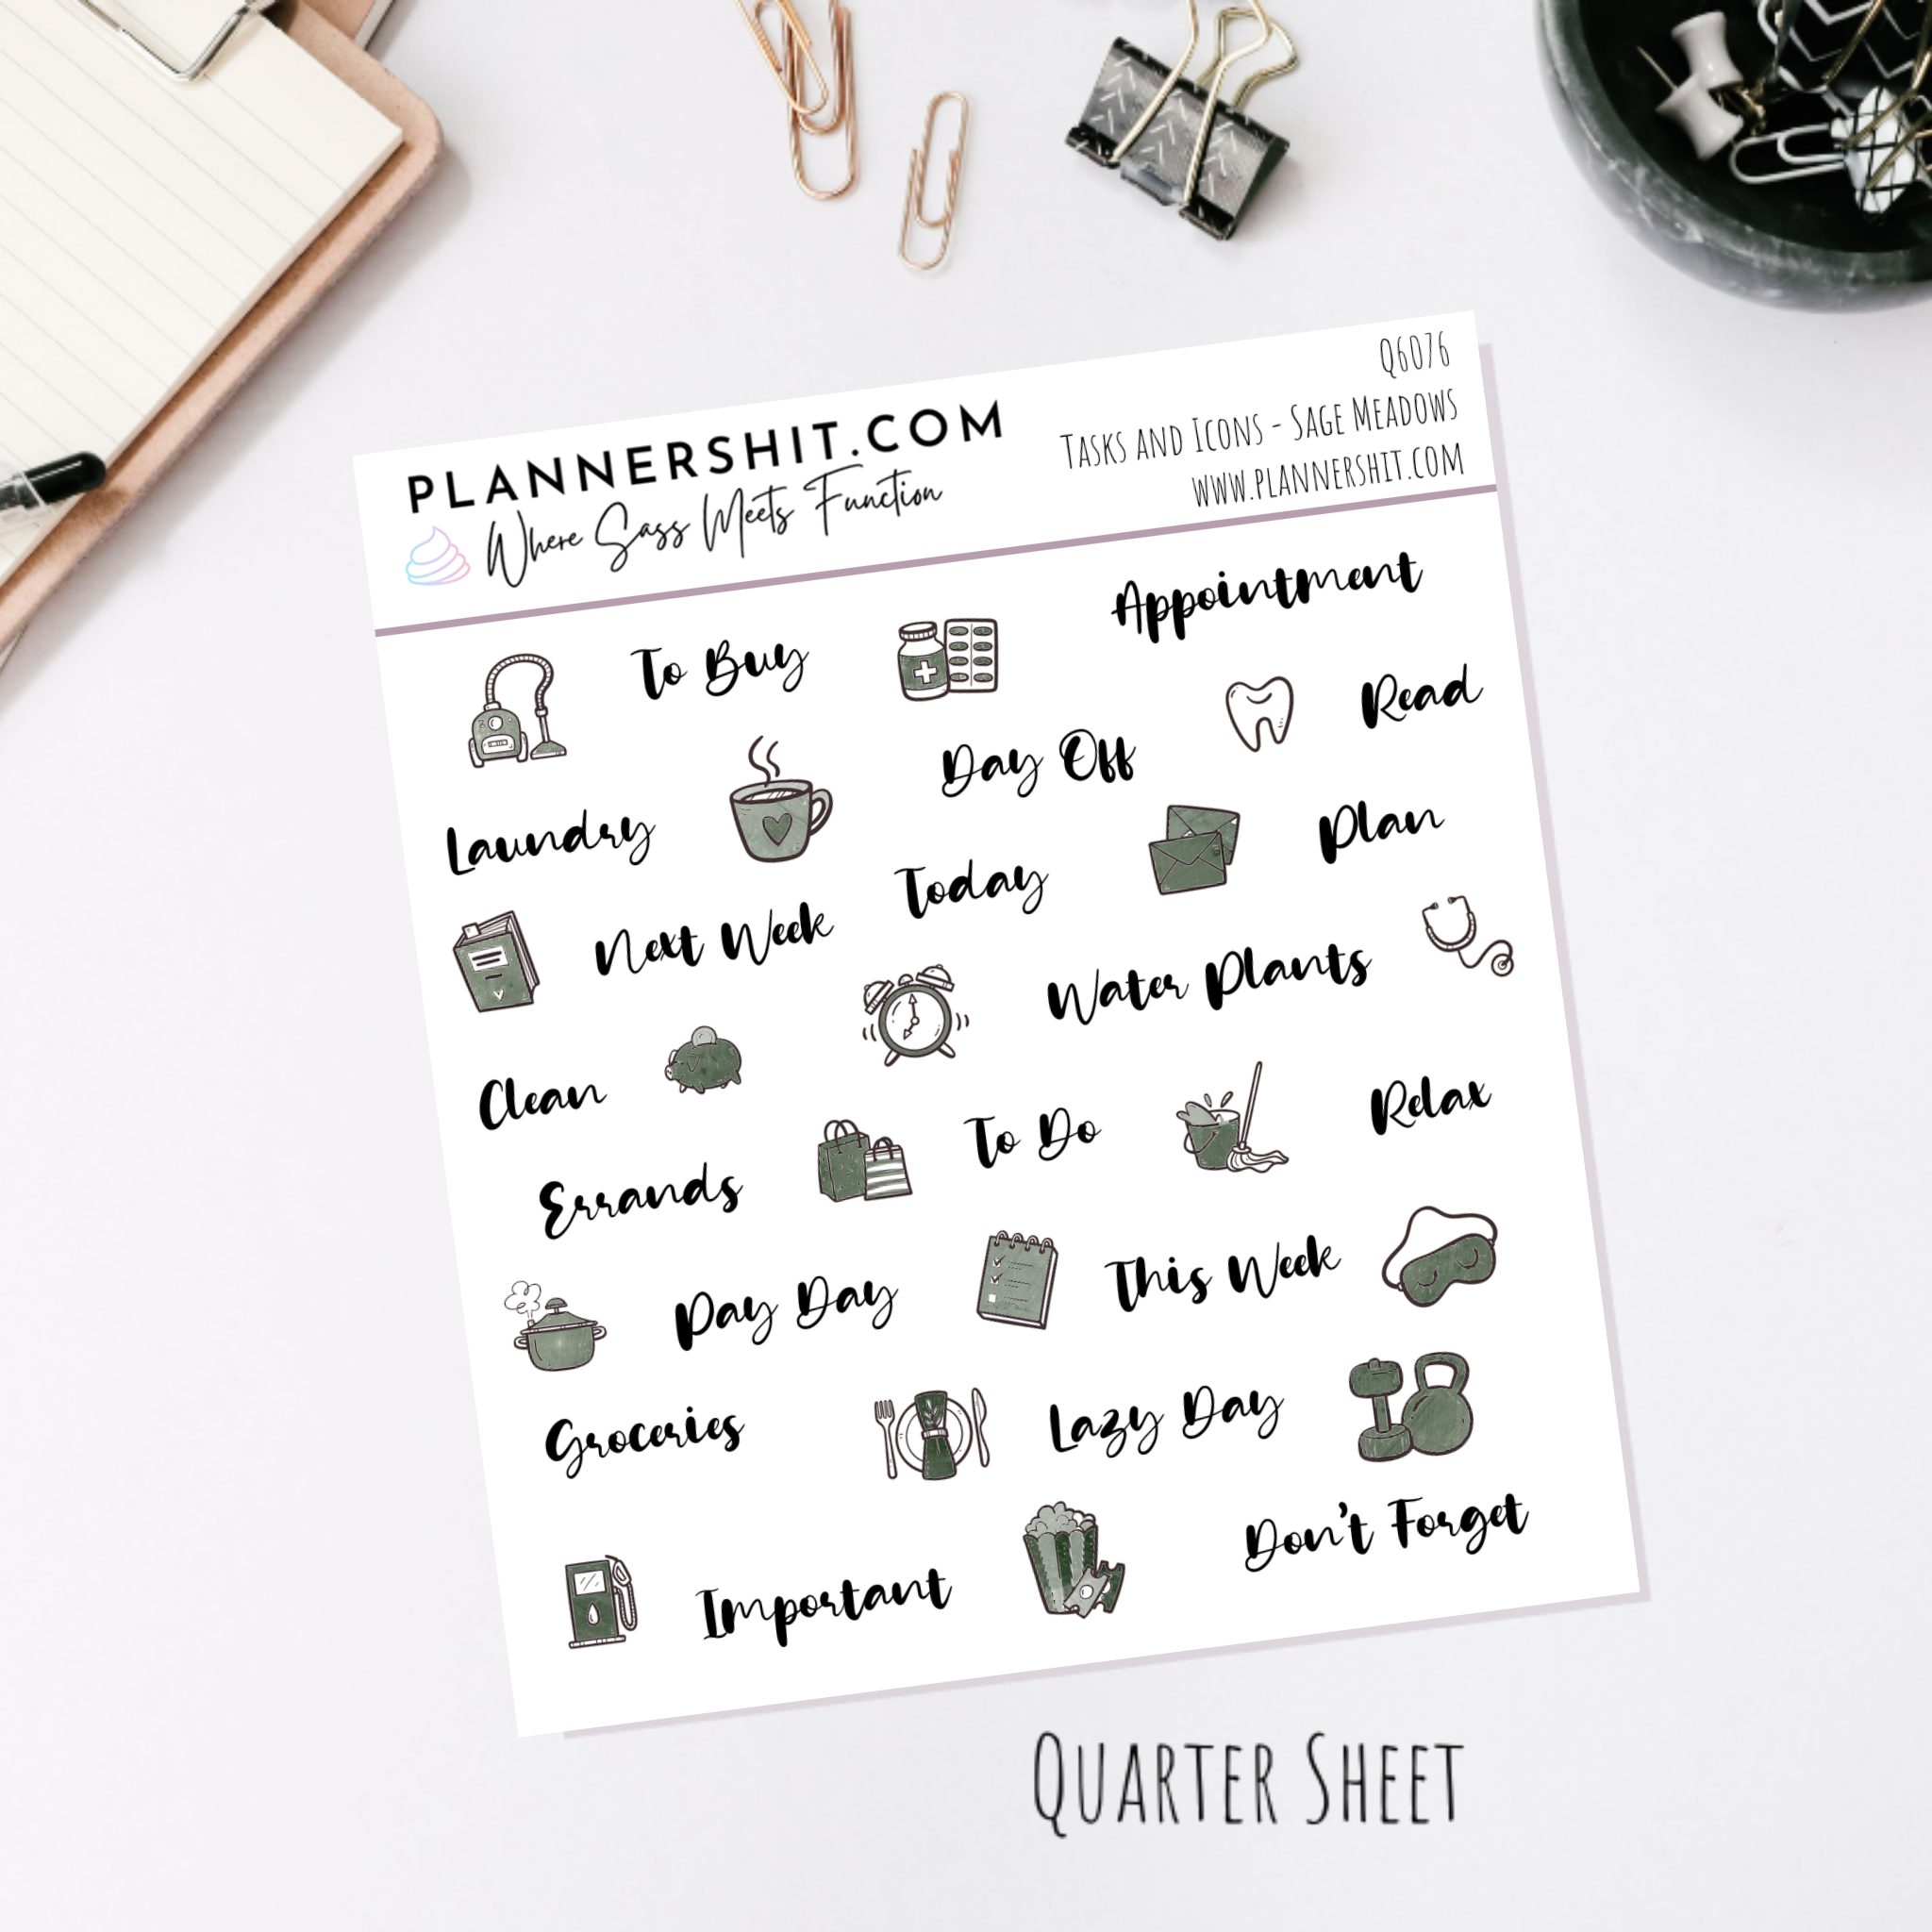 PLANNERSHIT.COM
Where Sass Meets Function
Q6076
Tasks and Icons - Sage Meadows
www.plannershit.com
To Buy
Appointment
Read
Day Off
Laundry
Plan
Today
Next Week
Water Plants
Clean
Relax
To Do
Errands
This Week
Pay Day
Lazy Day
Groceries
Don't Forget
Important
Quarter Sheet